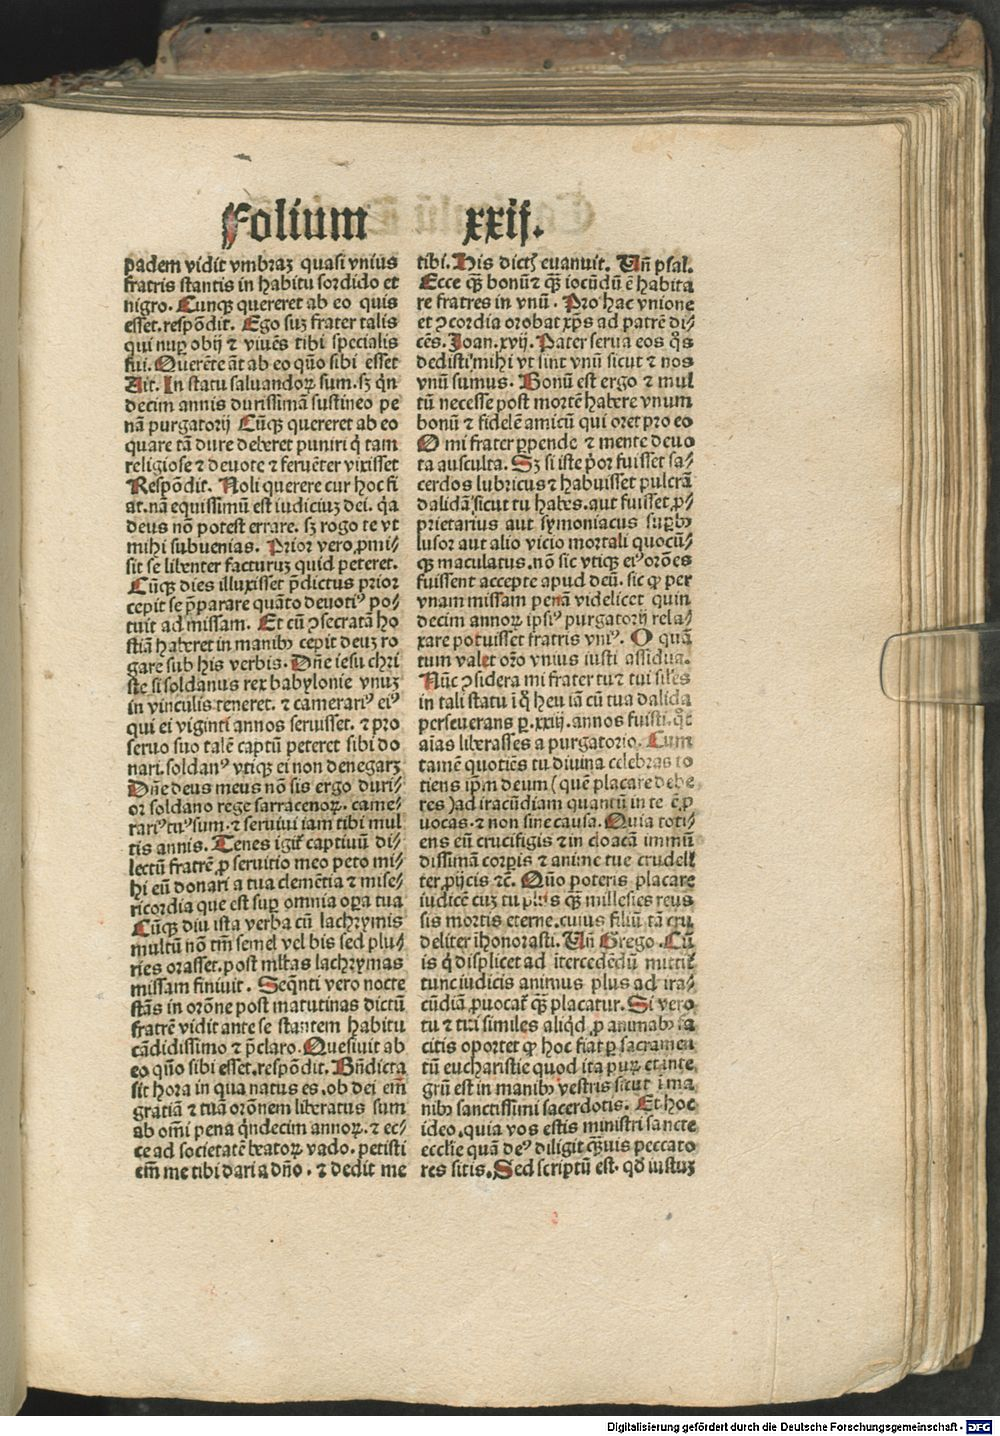 Folium xxij.
padem vidit vmbraꝫ quasi vnius
fratris stantis in habitu sordido et
nigro. Cunqꝫ quereret ab eo quis
esset. respōdit. Ego suꝫ frater talis
qui nuꝑ obij ⁊ viuēs tibi specialis
fui. Querēte āt ab eo quō sibi esset
Ait. In statu saluandoꝝ sum. sꝫ qͥn
decim annis durissimā sustineo pe
nā purgatorij Cūqꝫ quereret ab eo
quare tā dure deberet puniri qͥ tam
religiose ⁊ deuote ⁊ feruēter vixisset
Respōdit. Noli querere cur hoc fi
at. nā equissimū est iudiciuꝫ dei. qͥa
deus nō potest errare. sꝫ rogo te vt
mihi subuenias. Prior vero ꝓmi⸗
sit se libenter facturuꝫ quid peteret.
Cūqꝫ dies illuxisset p̄dictus prior
cepit se p̄parare quāto deuotiꝰ po⸗
tuit ad missam. Et cū ꝯsecratā ho
stiā haberet in manibꝫ cepit deuꝫ ro
gare sub his verbis. Dn̄e iesu chri
ste si soldanus rex babylonie vnuꝫ
in vinculis teneret. ⁊ camerariꝰ eiꝰ
qui ei viginti annos seruisset. ⁊ pro
seruo suo talē captū peteret sibi do
nari. soldanꝰ vtiqꝫ ei non denegarꝫ
Dn̄e deus meus nō sis ergo duri⸗
or soldano rege sarracenoꝝ. came⸗
rariꝰ tuꝰ sum. ⁊ seruiui iam tibi mul
tis annis. Tenes igiť captiuū di⸗
lectū fratrē ꝓ seruitio meo peto mi⸗
hi eū donari a tua clemētia ⁊ mise⸗
ricordia que est suꝑ omnia oꝑa tua
Cūqꝫ diu ista verba cū lachrymis
multū nō tm̄ semel vel bis sed plu⸗
ries orasset. post ml̄tas lachrymas
missam finiuit. Seqn̄ti vero nocte
stās in orōne post matutinas dictū
fratrē vidit ante se stantem habitu
cādidissimo ⁊ p̄claro. Quesiuit ab
eo quō sibi esset. respōdit. Bn̄dicta
sit hora in qua natus es. ob dei em̄
gratiā ⁊ tuā orōnem liberatus sum
ab om̄i pena qͥndecim annoꝝ. ⁊ ec⸗
ce ad societatē beatoꝝ vado. petisti
em̄ me tibi dari a dn̄o. ⁊ dedit me
tibi. His dictꝭ euanuit. Vn̄ psal.
Ecce qꝫ bonū ⁊ qꝫ iocūdū ē habita
re fratres in vnū. Pro hac vnione
et ꝯcordia orobat xp̄s ad patrē di⸗
cēs. Joan. xvij. Pater serua eos qͦs
dedisti mihi vt sint vnū sicut ⁊ nos
vnū sumus. Bonū est ergo ⁊ mul
tū necesse post mortē habere vnum
bonū ⁊ fidelē amicū qui oret pro eo
O mi frater ꝑpende ⁊ mente deuo
ta ausculta. Sꝫ si iste pͥor fuisset sa⸗
cerdos lubricus ⁊ habuisset pulcrā
dalidā sicut tu habes. aut fuisset ꝓ⸗
prietarius aut symoniacus suꝑbꝰ
lusor aut alio vicio mortali quocū⸗
qꝫ maculatus. nō sic vtiqꝫ eiꝰ orōes
fuissent accepte apud deū. sic ꝙ per
vnam missam penā videlicet quin
decim annoꝝ ipsiꝰ purgatorij rela⸗
xare potuisset fratris vniꝰ. O quā
tum valet orō vnius iusti assidua.
Nūc ꝯsidera mi frater tu ⁊ tui siles
in tali statu ī qͦ heu iā cū tua dalida
perseuerans ꝑ. xxiij. annos fuisti. qͦt
aīas liberasses a purgatorio. Cum
tamē quotiēs tu diuina celebras to
tiens ip̄m deum (quē placare debe
res) ad iracūdiam quantū in te ē ꝓ
uocas. ⁊ non sine causa. Quia toti⸗
ens eū crucifigis ⁊ in cloacā immū
dissimā corꝑis ⁊ anime tue crudeli
ter ꝓijcis ⁊c̄. Quō poteris placare
iudicē cuꝫ tu plus qꝫ millesies reus
sis mortis eterne. cuius filiū tā cru
deliter īhonorasti. Vn̄ Grego. Cū
is qͥ displicet ad ītercedēdū mittiť
tunc iudicis animus plus ad ira⸗
cūdiā ꝓuocať qꝫ placatur. Si vero
tu ⁊ tui similes aliqͥd ꝓ animabꝫ fa
citis oportet ꝙ hoc fiat ꝑ sacramen
tū eucharistie quod ita puꝝ et inte
grū est in manibꝫ vestris sicut ī ma
nibꝫ sanctissimi sacerdotis. Et hoc
ideo. quia vos estis ministri sancte
ecclīe quā deꝰ diligit qꝫuis peccato
res sitis. Sed scriptū est. qd̄ iustuꝫ
Digitalisierung gefördert durch die Deutsche Forschungsgemeinschaft - DFG